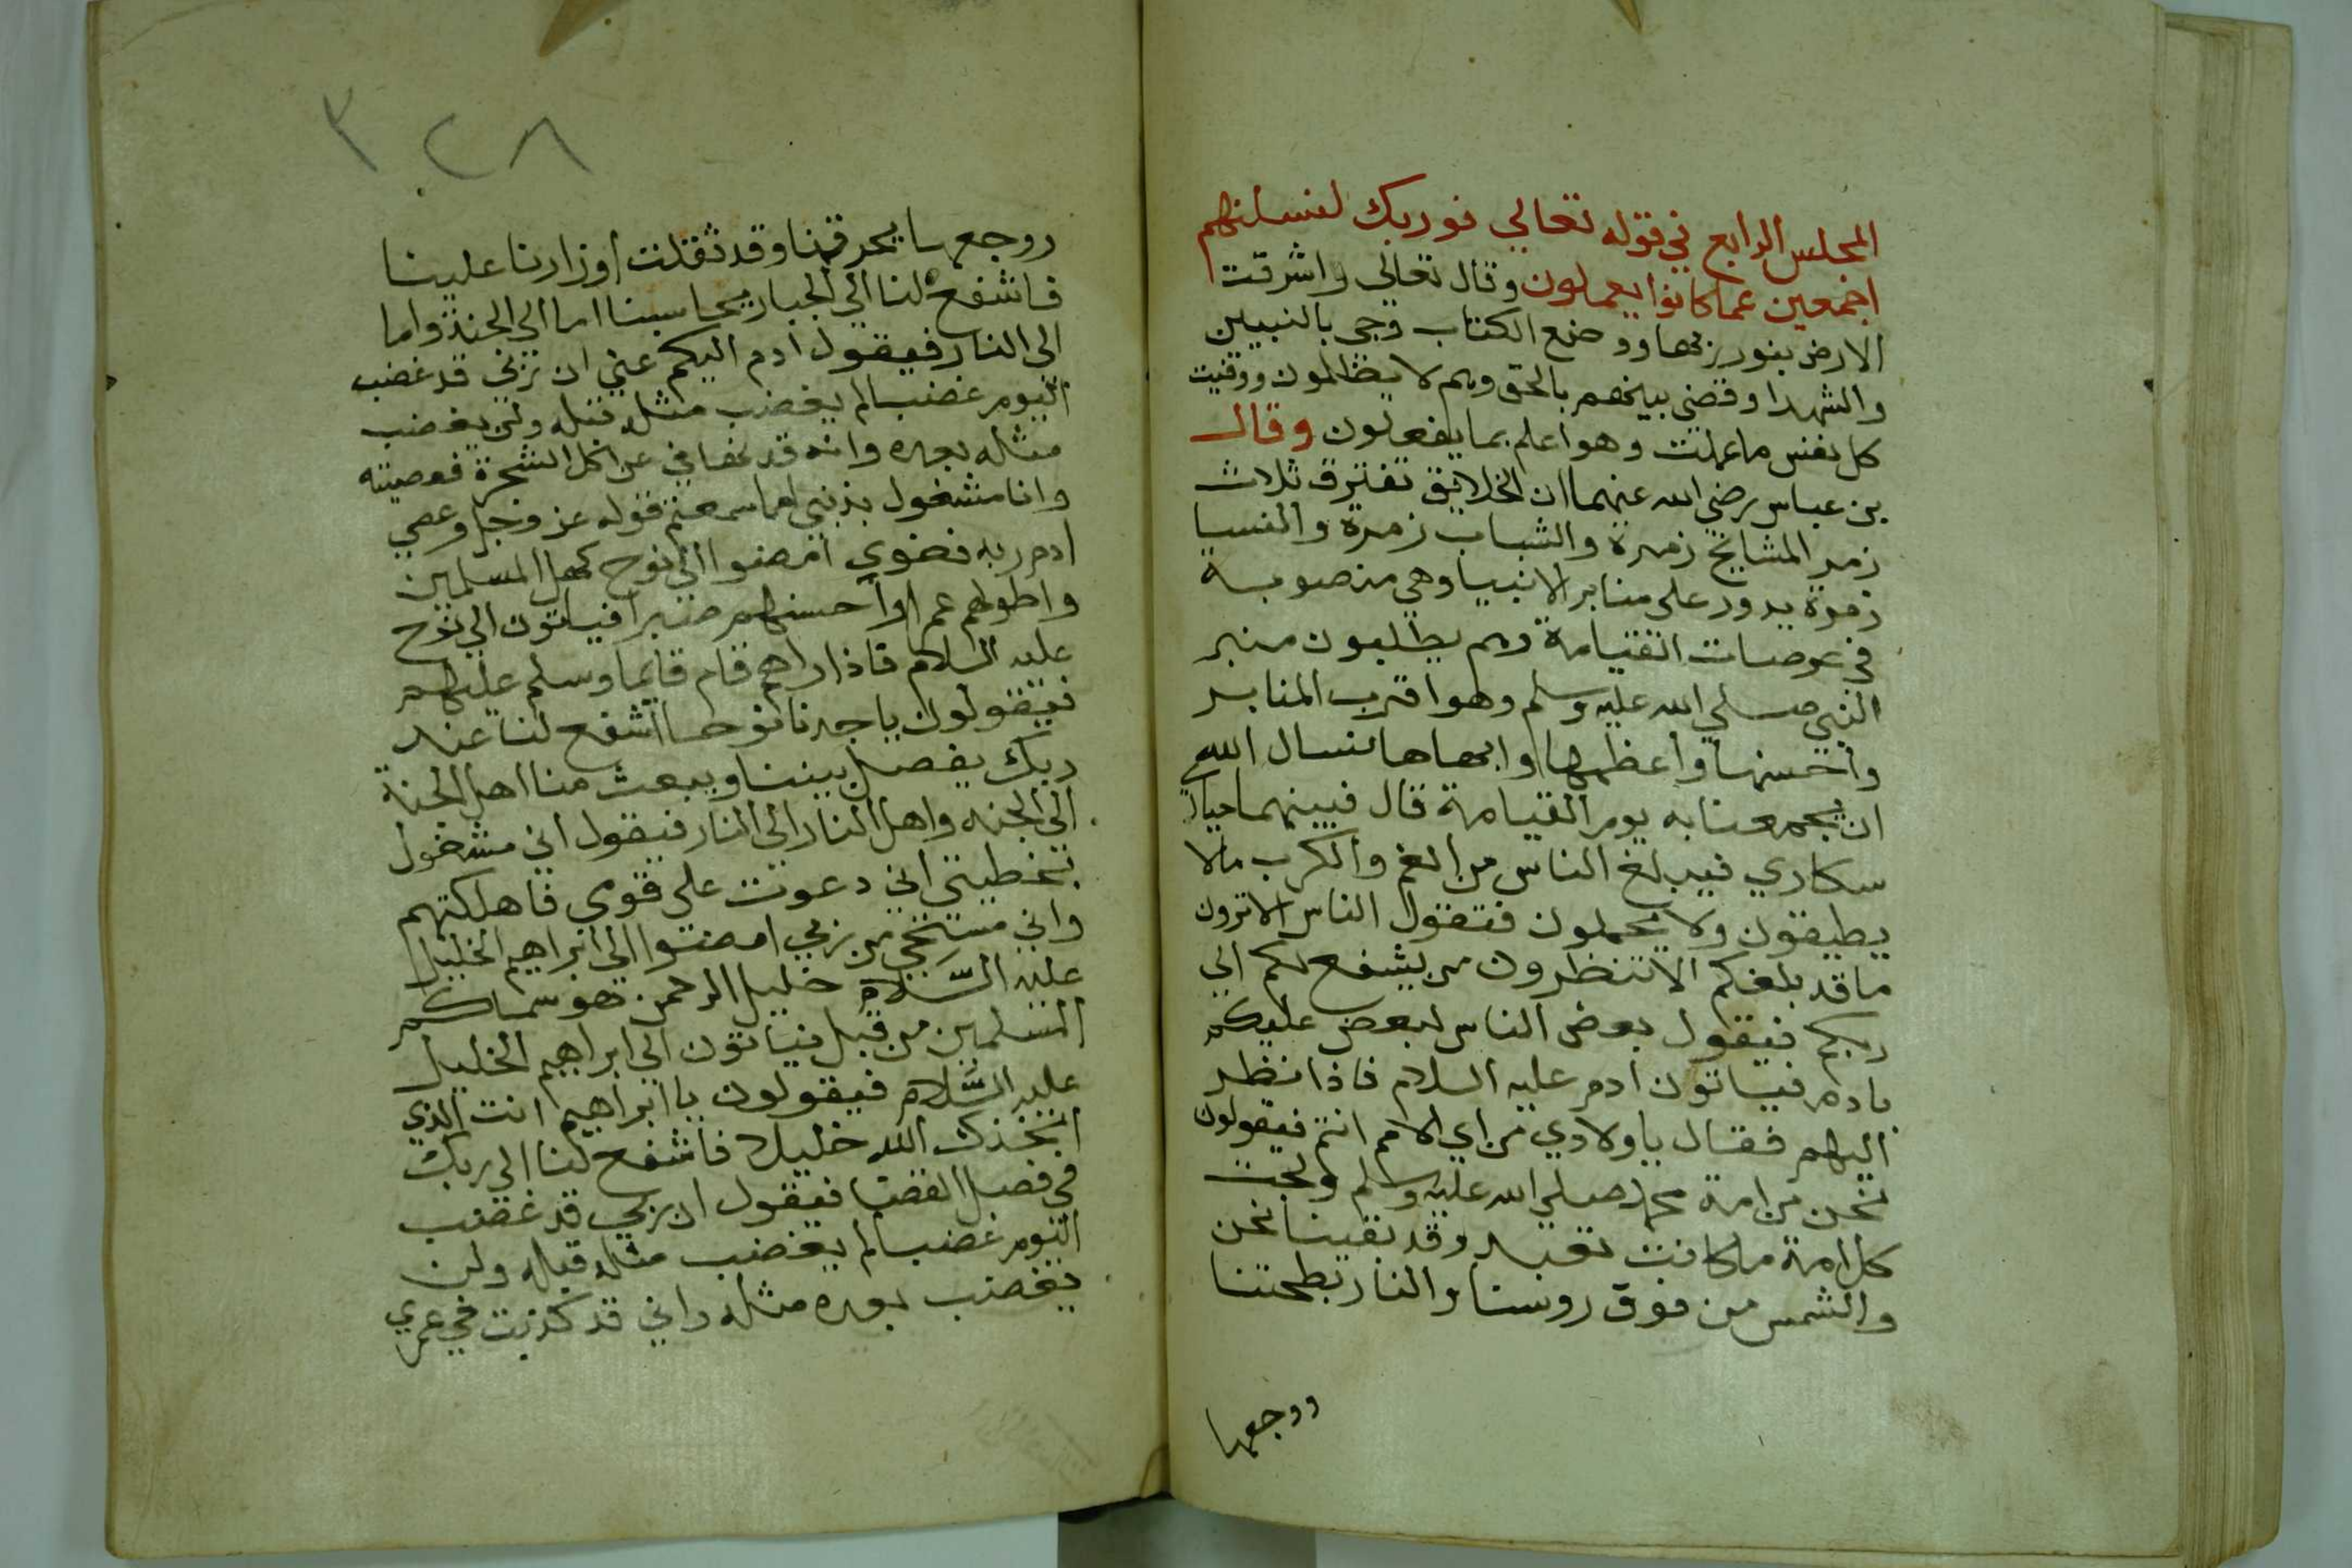 المجلس الرابع في قوله تعالي فوربك لنسلنهم
اجمعين عما كانوا يعملون وقال تعالي واشرقت
الارض بنور ربها ووضع الكتاب وجي بالنبيين
والشهدا وقضي بينهم بالحق وهم لا يظلمون ووفيت
كل نفس ما عملت وهو اعلم بما يفعلون وقال
بن عباس رضي الله عنهما ان الخلايق تفترق ثلاث
زمر المشايخ زمرة والشباب زمرة والنسا
زمرة يدور على منابر الانبيا وهي منصوبة
في عرصات القيامة وهم يطلبون منبر
النبي صلي الله عليه وسلم وهو اقرب المنابر
واحسنها واعظمها وابهاها نسال الله
ان يجمعنا به يوم القيامة قال فبينهما حيارا
سكاري فيبلغ الناس من الغم والكرب مالا
يطيقون ولا يحملون فتقول الناس الا ترون
ما قد بلغكم الا تنظرون من يشفع لكم الي
ربكم فيقول بعض الناس لبعض عليكم
بادم فياتون ادم عليه السلام فاذا نظر
اليهم فقال ياولادي من اي الامم انتم فيقولون
نحن من امة محمد صلي الله عليه وسلم ولجت
كل امة ما كانت تعبد وقد بقينا نحن
والشمس من فوق روسنا والنار بطحتنا
ووجعها
٣٢٨
ووجعها يحرقنا وقد ثقلت اوزارنا علينا
فاشفع لنا الي الجبار يحاسبنا اما الى الجنة واما
الى النار فيقول ادم اليكم عني ان ربي قد غضب
اليوم غضبا لم يغضب مثله قبله ولن يغضب
مثله بعده وانه قد نهاني عن اكل الشجرة فعصيته
وانا مشغول بذنبي اما سمعتم قوله عز وجل وعصي
ادم ربه فغوي امضوا الي نوح كهل المسلمين
واطولهم عمرا واحسنهم صبرا فياتون الي نوح
عليه السلام فاذا راهم قام قايما وسلم عليهم
فيقولون يا جدنا نوحا اشفع لنا عند
ربك يفصل بيننا ويبعث منا اهل الجنة
الي الجنه واهل النار الي النار فيقول اني مشغول
بخطيتي اني دعوت على قومي فاهلكتهم
واني مستحي من ربي امضوا الي ابراهيم الخليل
عليه السلام خليل الرحمن هو سماكم
المسلمين من قبل فياتون الي ابراهيم الخليل
عليه السلام فيقولون يا ابراهيم انت الذي
اتخذك الله خليلا فاشفع لنا الي ربك
في فصل القضا فيقول ان ربي قد غضب
اليوم غضبا لم يغضب مثله قبله ولن
يغضب بعده مثله واني قد كذبت في عمري